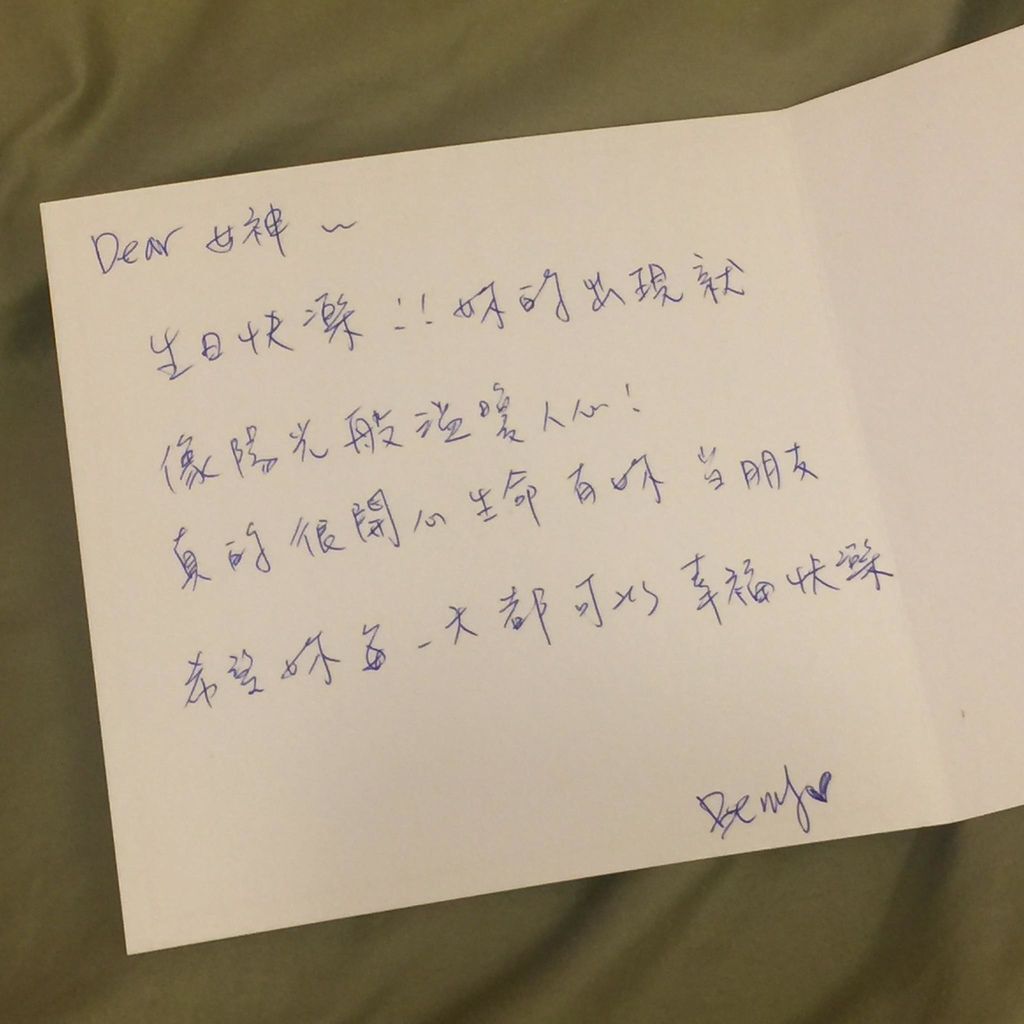 Dear 女神~
生日快樂!! 妳的出現就
像陽光般溫暖人心!
真的很開心生命有妳當朋友
希望妳每一天都可以幸福快樂